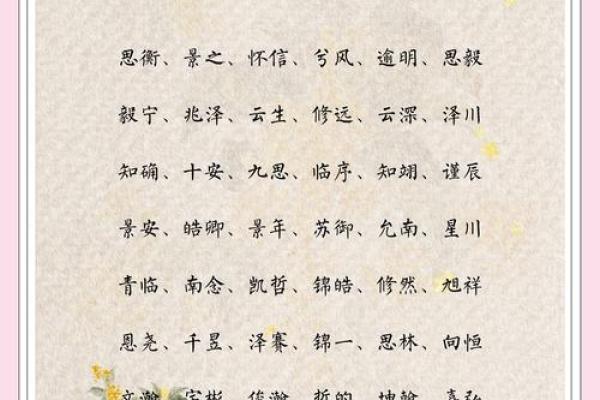 思衡、景之、怀信、兮风、逾明、思毅
毅宁、兆泽、云生、修远、云深、泽川
知确、十安、九思、临序、知翊、谨辰
景安、皓卿、景年、苏御、允南、星川
青临、南念、凯哲、锦皓、修然、旭祥
恩尧、千昱、泽赛、锦一、思林、向恒
文瀚、宇彬、俊瀚、哲的、坤翰、嘉弘